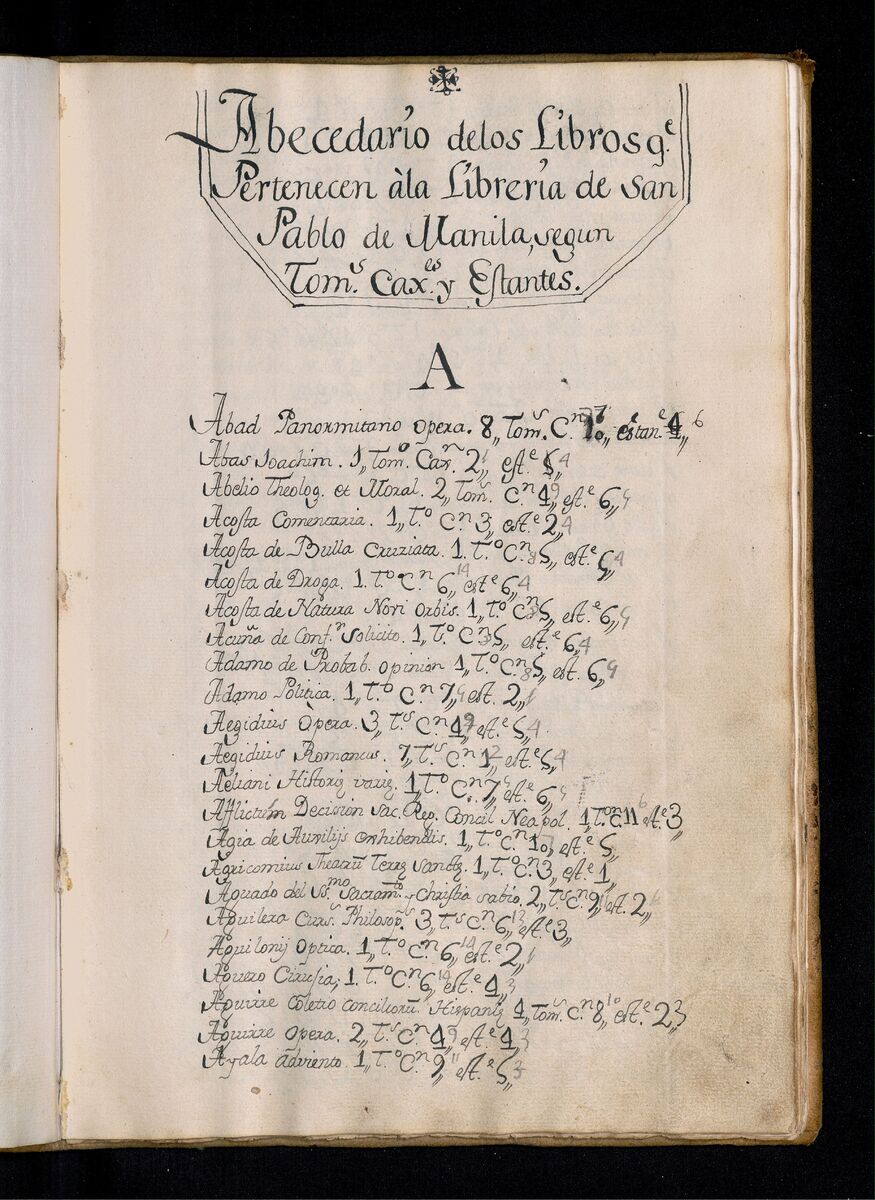 Abecedario delos Libros q.e
Pertenecen àla Librería de San
Pablo de Manila, segun
Tom.s Cax.es y Estantes.
A
Abad Panormitano opera. 8,, Tom.s C.n 10,, estan.e 4,, 6
Abas Joachim. 1,, Tom.o Cax.n 2,, est.e 5,, 4
Abelio Theolog. et Moral. 2,, Tom.s C.n 4,, 9 est.e 6,, 4
Acosta Comentaria. 1,, T.o C.n 3,, est.e 2,, 4
Acosta de Bulla Cruziata. 1. T.o C.n 5,, 8 est.e 5,, 4
Acosta de Droga. 1. T.o C.n 6,, 14 est.e 6,, 4
Acosta de Natura Novi Orbis. 1,, T.o C.n 5,, est.e 6,, 4
Acuña de Conf.n solicito. 1,, T.o C.n 5,, est.e 6,, 4
Adamo de Probab. opinion 1,, T.o C.n 5,, 8 est. 6,, 4
Adamo Politica. 1,, T.o C.n 7,, 4 est. 2,, 1
Aegidius Opera. 3,, T.s C.n 4,, 9 est.e 5,, 4
Aegidius Romanus. 7,, T.s C.n 1,, 2 est.e 5,, 4
Aeliani Historię varię. 1,, T.o C.n 7,, 4 est.e 6,,
Afflictum Decision Sac. Reg. Concil Neapol. 1,, T.o C.n 11 6 est.e 3,,
Agia de Auxilijs exhibendis. 1,, T.o C.n 10,, est.e 5,,
Agricomius Theatrũ Terrę Sanctę. 1,, T.o C.n 3,, est.e 1,,
Aguado del SS.mo Sacram.to y Christia sabio. 2,, T.s C.n 9,, est. 2,,
Aguilera Curs.s Philosop.s 3,, T.s C.n 6,, 13 est.e 3,,
Aguilonij Optica. 1,, T.o C.n 6,, 14 est.e 2,, 1
Aguero Cirusia, 1. T.o C.n 6,, 14 est.e 4,, 3
Aguirre Coletio Conciliorũ Hispanię 4,, Tom.s C.n 8,, 10 est.e 2,, 3
Aguirre Opera. 2,, T.s C.n 4,, 9 est.e 4,, 3
Ayala adviento. 1,, T.o C.n 9,, 11 est.e 5,, 3